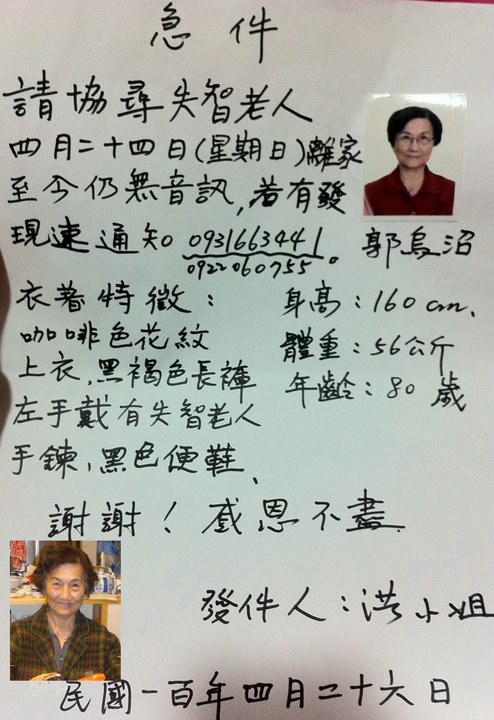 急件
請協尋失智老人
四月二十四日(星期日)離家
至今仍無音訊,若有發
現速通知 0931663441
0922060755。
郭烏沼
衣著特徵:
咖啡色花紋
上衣、黑褐色長褲
左手戴有失智老人
手鍊、黑色便鞋、
身高:160cm.
體重:56公斤
年齡:80歲
謝謝!感恩不盡.
發件人:洪小姐
民國一百年四月二十六日